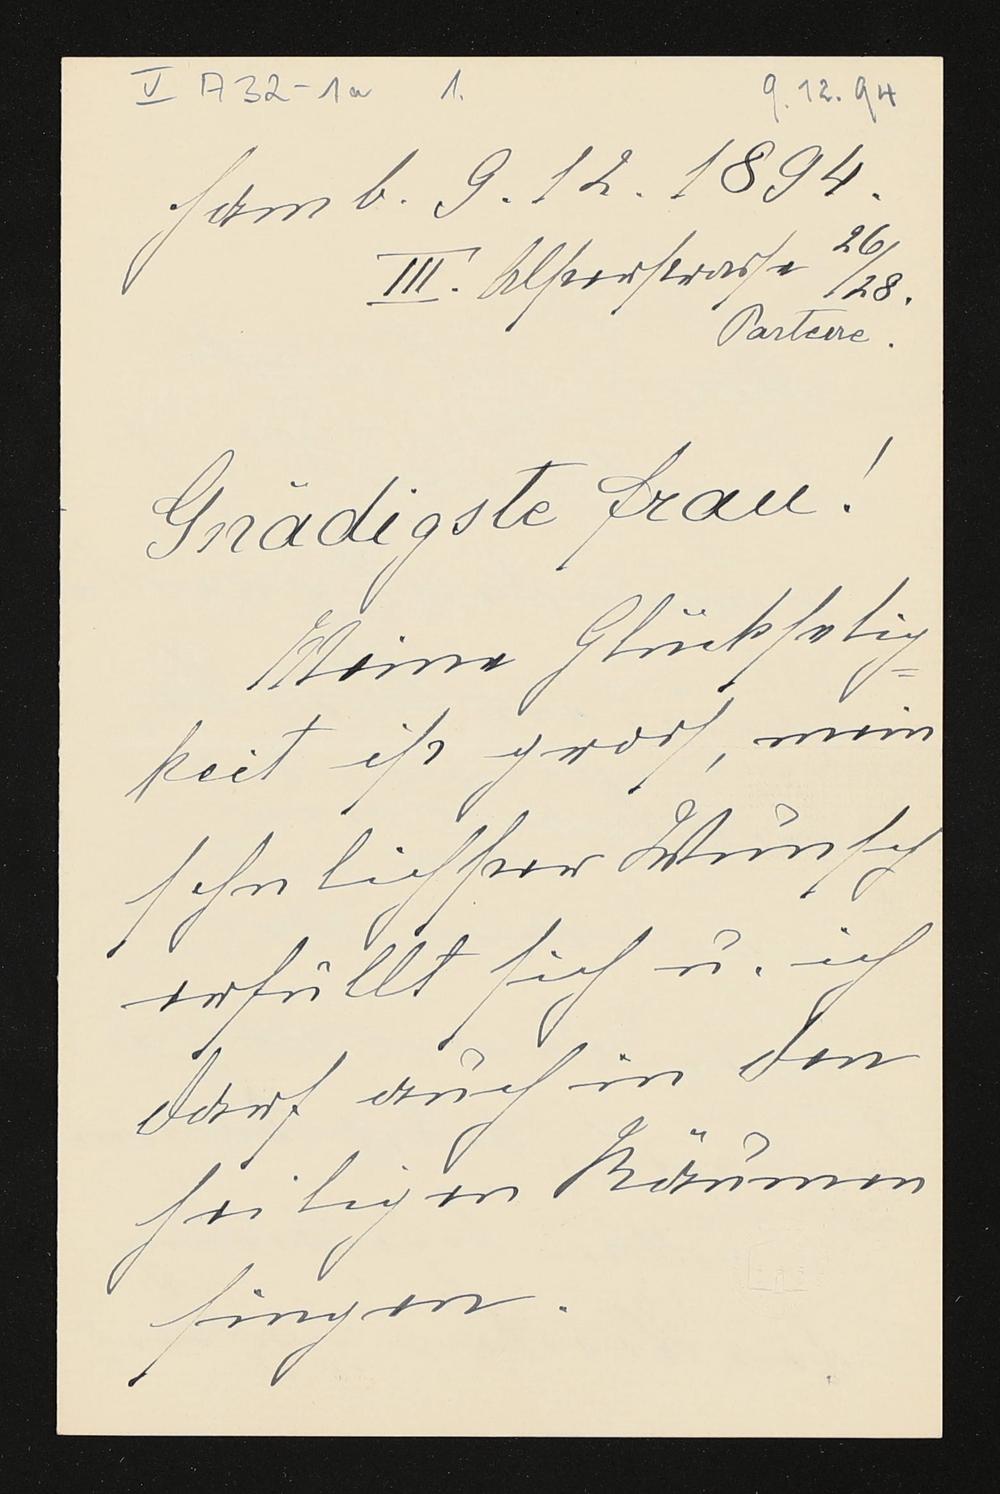 V A 32-1a 1. 9.12.94
Hamb. 9. 12. 1894.
III. Alsterstrasse 26/28.
Parterre.
Gnädigste Frau!
Meine Glückselig=
keit ist gross, mein
sehnlichster Wunsch
erfüllt sich u. ich
darf auch in den
heiligen Räumen
singen.